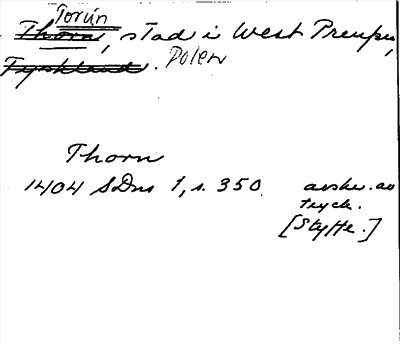 Torún
Thorn, stad i West Preussen,
Tyskland. Polen
Thorn
1404 SDns 1, s. 350. avskr. av
tryck.
[Styffe.]